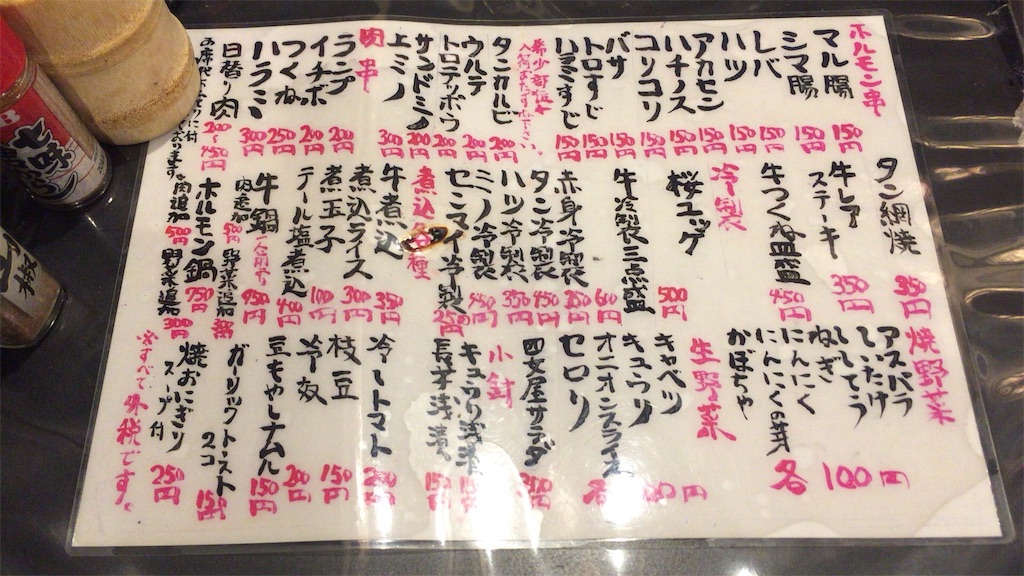 ホルモン串
マル腸 150円
シマ腸 150円
レバ 150円
ハツ 150円
アカセン 150円
ハチノス 150円
コリコリ 150円
バサ 150円
トロすじ 150円
ハラミすじ 150円
希少部位
タンカルビ 200円
ウルテ 200円
トロテッポウ 200円
サンドミノ 200円
上ミノ 300円
肉串
ランプ 200円
イチボ 200円
つくね 250円
ハラミ 300円
日替り肉 200円~450円
タン網焼 350円
牛レアステーキ 350円
牛つくね皿盛 450円
冷製
桜ユッケ 500円
牛冷製三点盛 600円
赤身冷製 350円
タン冷製 450円
ハツ冷製 350円
ミノ冷製 450円
センマイ冷製 250円
煮込
牛煮込 350円
煮込ライス 300円
煮玉子 100円
テール塩煮込 400円
牛鍋 950円
野菜追加
ホルモン鍋 950円
肉追加 500円 野菜追加 300円
焼野菜
アスパラ
しいたけ
ししとう
ねぎ
にんにく
にんにくの芽
かぼちゃ
各100円
生野菜
キャベツ
キュウリ
オニオンスライス
セロリ
四文屋サラダ 300円
小鉢
キュウリ浅漬 150円
長芋浅漬 150円
冷しトマト 200円
枝豆 150円
冷奴 200円
豆もやしナムル 150円
ガーリックトースト 2コ 150円
焼おにぎり スープ付 250円
※すべて外税です。